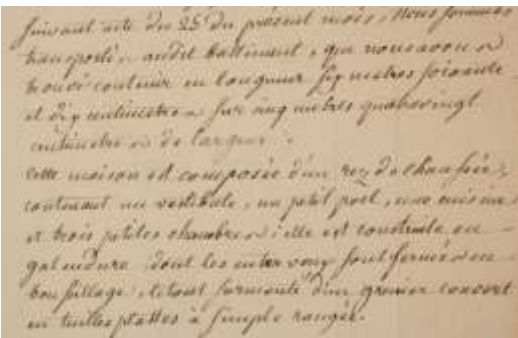 suivant acte du 25 du présent mois, nous sommes
transporté audit battiment, que nous avons
trouvé contenir en longueur six metres soixante
et dix centimetres sur cinq metres quatrevingt
centimetres de largeur.
cette maison est composée d'un rez de chaussée,
contenant un vestibule, un petit poël, une cuisine
et trois petites chambres; elle est construite en
galandure dont les entrevoux sont fermés en
bousillage, étant surmonté d'un grenier couvert
en tuilles plattes à simple rangée.